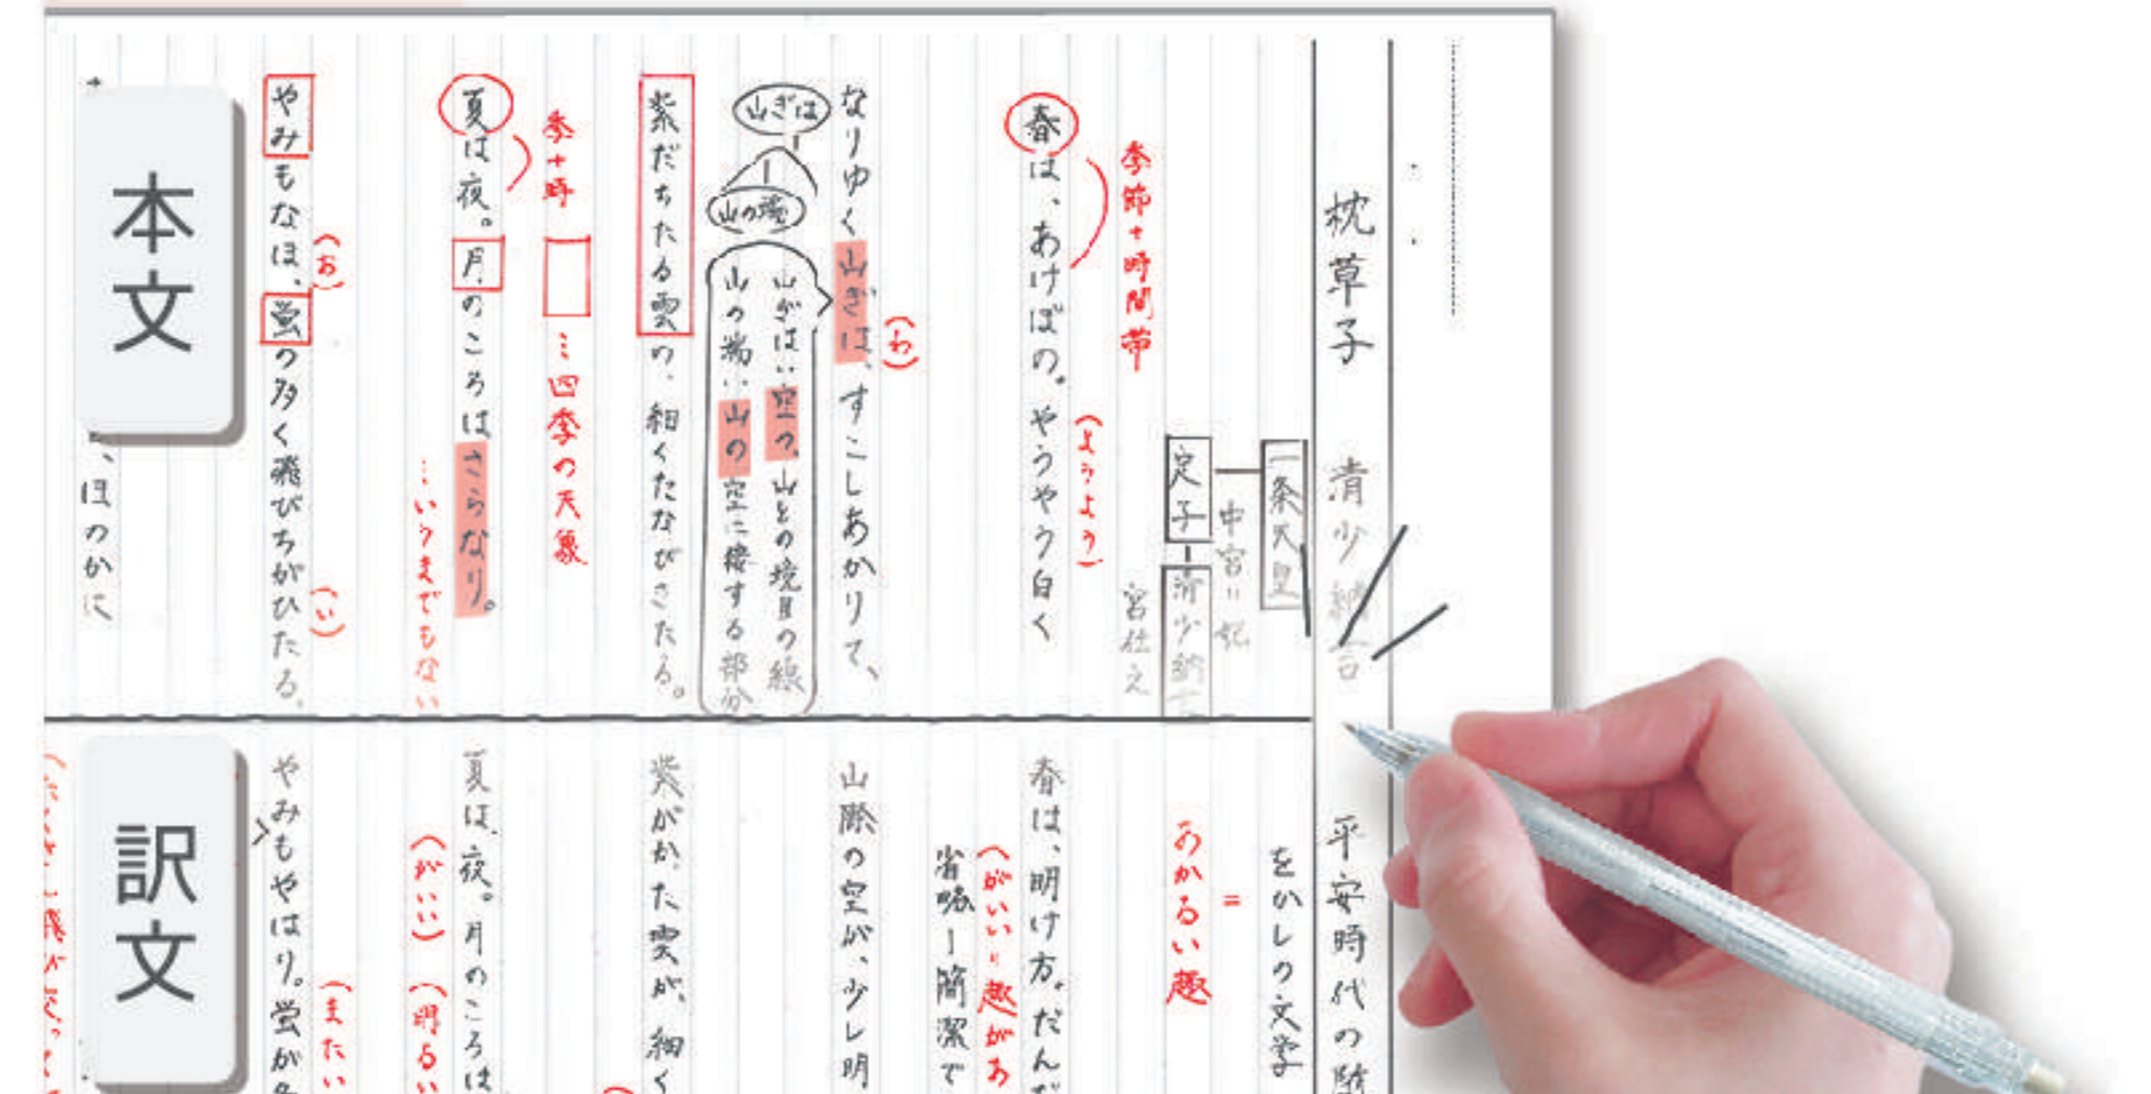 枕草子 清少納言
一条天皇
中宮=妃
定子
清少納言
宮仕え
季節+時間帯
(ようよう)
春は、あけぼの。やうやう白く
(わ)
なりゆく山ぎは、すこしあかりて、
山ぎは
山の端
山ぎは…空の、山との境目の線
山の端…山の空に接する部分
紫だちたる雲の、細くたなびきたる。
季+時
…四季の天象
夏は夜。月のころはさらなり。
…いうまでもない
(お)
(い)
やみもなほ、蛍の多く飛びちがひたる。
、ほのかに
本文
平安時代の
をかしの文学
=
あかるい趣
春は、明け方。だんだ
(がいい=趣があ
省略ー簡潔で
山際の空が、少し明
紫がかった雲が、細く
夏は、夜。月のころは
(がいい)(明るい
(またい
やみもやはり。蛍が多
訳文